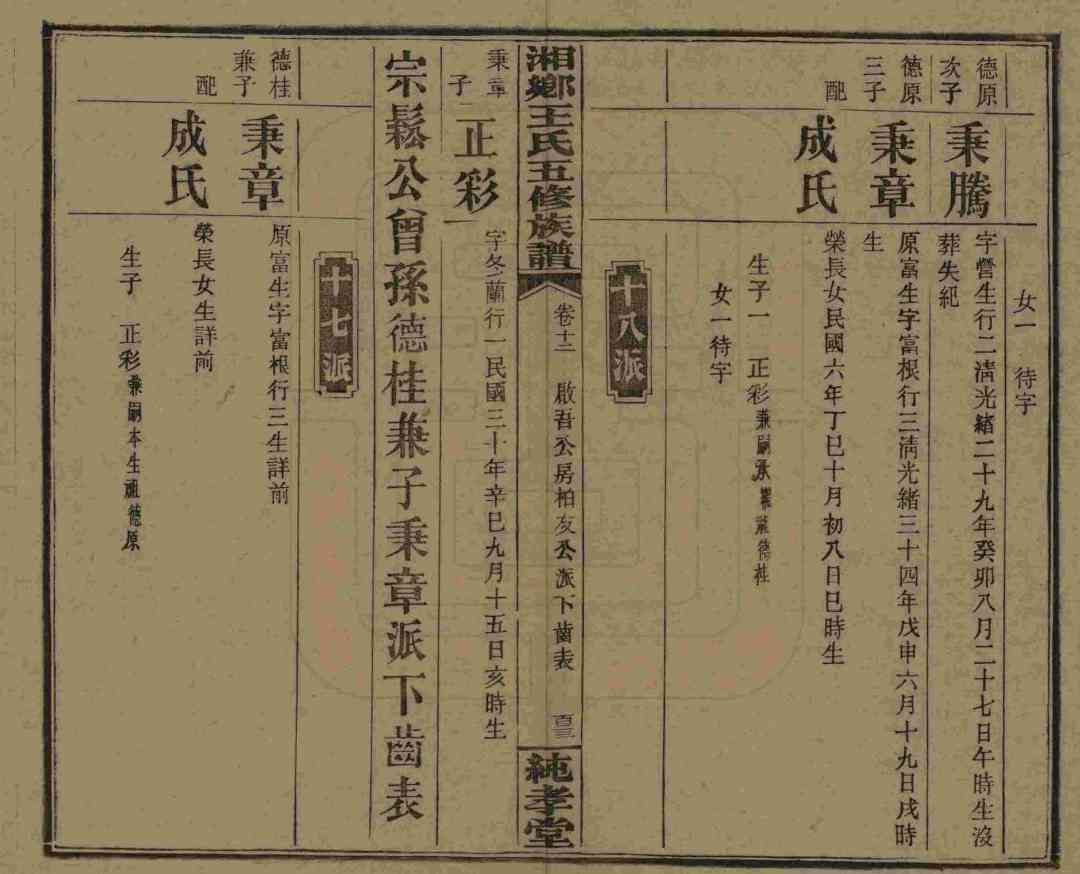 女一 待字
德原次子
秉騰
字營生行二淸光緒二十九年癸卯八月二十七日午時生沒
葬失紀
德原三子
秉章
原富生字富根行三淸光緒三十四年戊申六月十九日戌時
生
配
成氏
榮長女民國六年丁巳十月初八日巳時生
生子一 正彩兼嗣承繼祖德桂
女一待字
十八派
湘鄉王氏五修族譜
卷十二 啟吾公房柏友公派下齒表
純孝堂
秉章子
正彩
字冬蘭行一民國三十年辛巳九月十五日亥時生
宗鬆公曾孫德桂兼子秉章派下齒表
十七派
德桂兼子
秉章
原富生字富根行三生詳前
配
成氏
榮長女生詳前
生子 正彩兼嗣本生祖德原